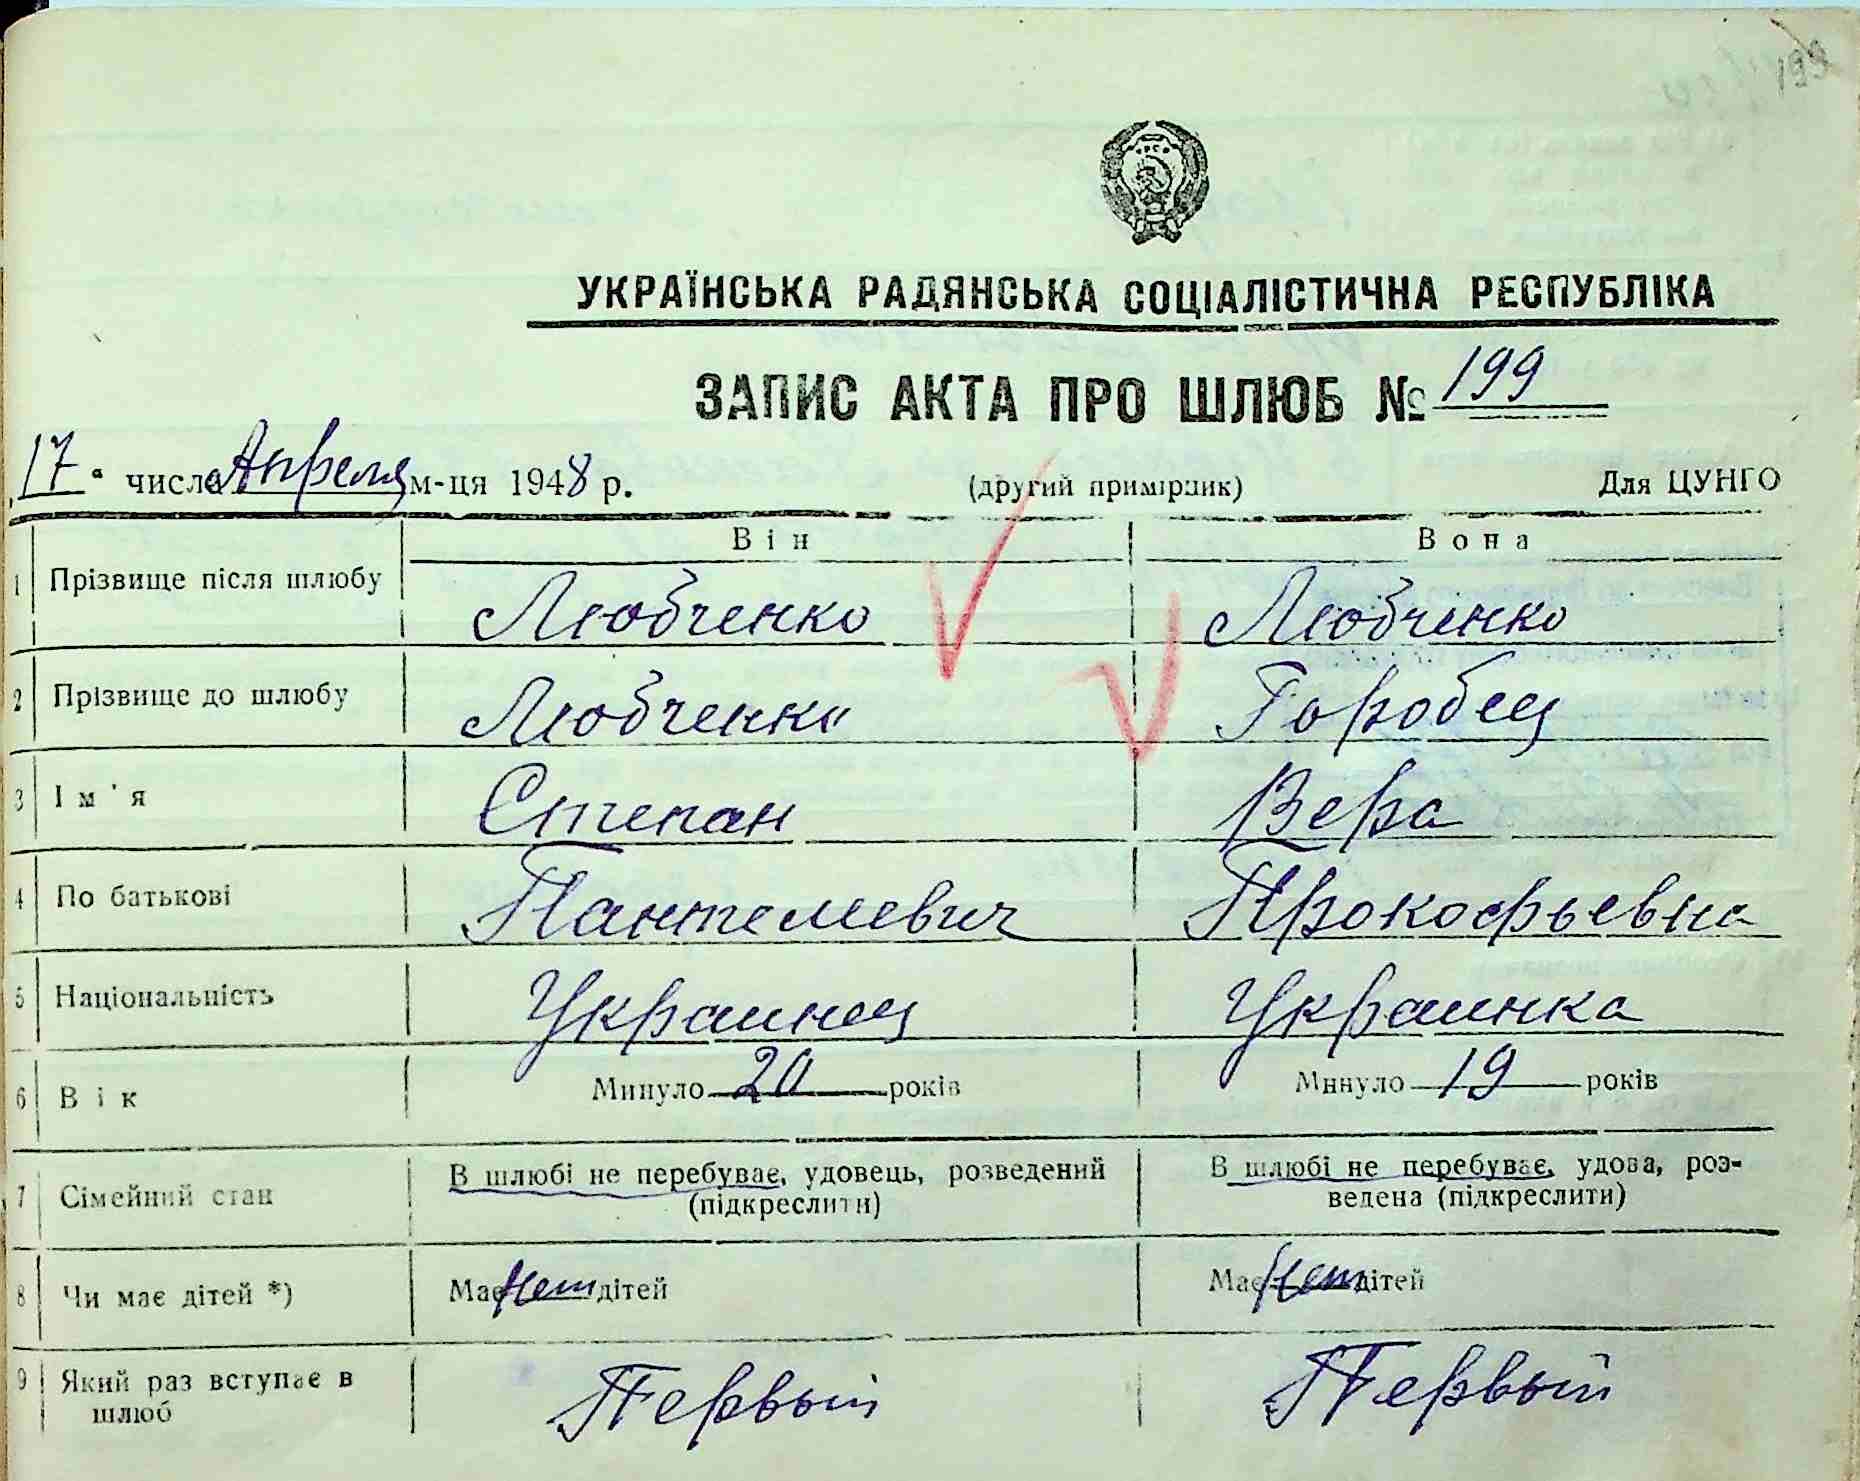 199
УКРАЇНСЬКА РАДЯНСЬКА СОЦІАЛІСТИЧНА РЕСПУБЛІКА
ЗАПИС АКТА ПРО ШЛЮБ № 199
17 числа Апреля м-ця 1948 р. (другий примірник) Для ЦУНГО
Він Вона
1 Прізвище після шлюбу Любченко Любченко
2 Прізвище до шлюбу Любченко Горобец
3 Ім'я Степан Вера
4 По батькові Пантелевич Прокофьевна
5 Національність Украинец Украинка
6 Вік Минуло 20 років Минуло 19 років
7 Сімейний стан В шлюбі не перебуває, удовець, розведений (підкреслити) В шлюбі не перебуває, удова, роз-
ведена (підкреслити)
8 Чи має дітей *) Має Нет дітей Має Нет дітей
9 Який раз вступає в Первый Первый
шлюб